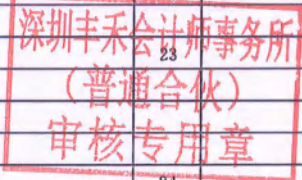 深圳丰禾会计师事务所
23
（普通合伙）
审核专用章